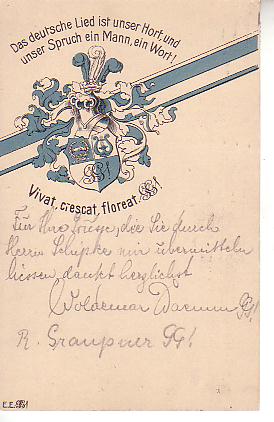 Das deutsche Lied ist unser Hort, und
unser Spruch ein Mann, ein Wort!
Vivat, crescat, floreat
Für Ihre Grüße, die Sie durch
Herrn Schipke mir übermitteln
liessen, dankt herzlichst
Woldemar
R. Graupner
E.E.